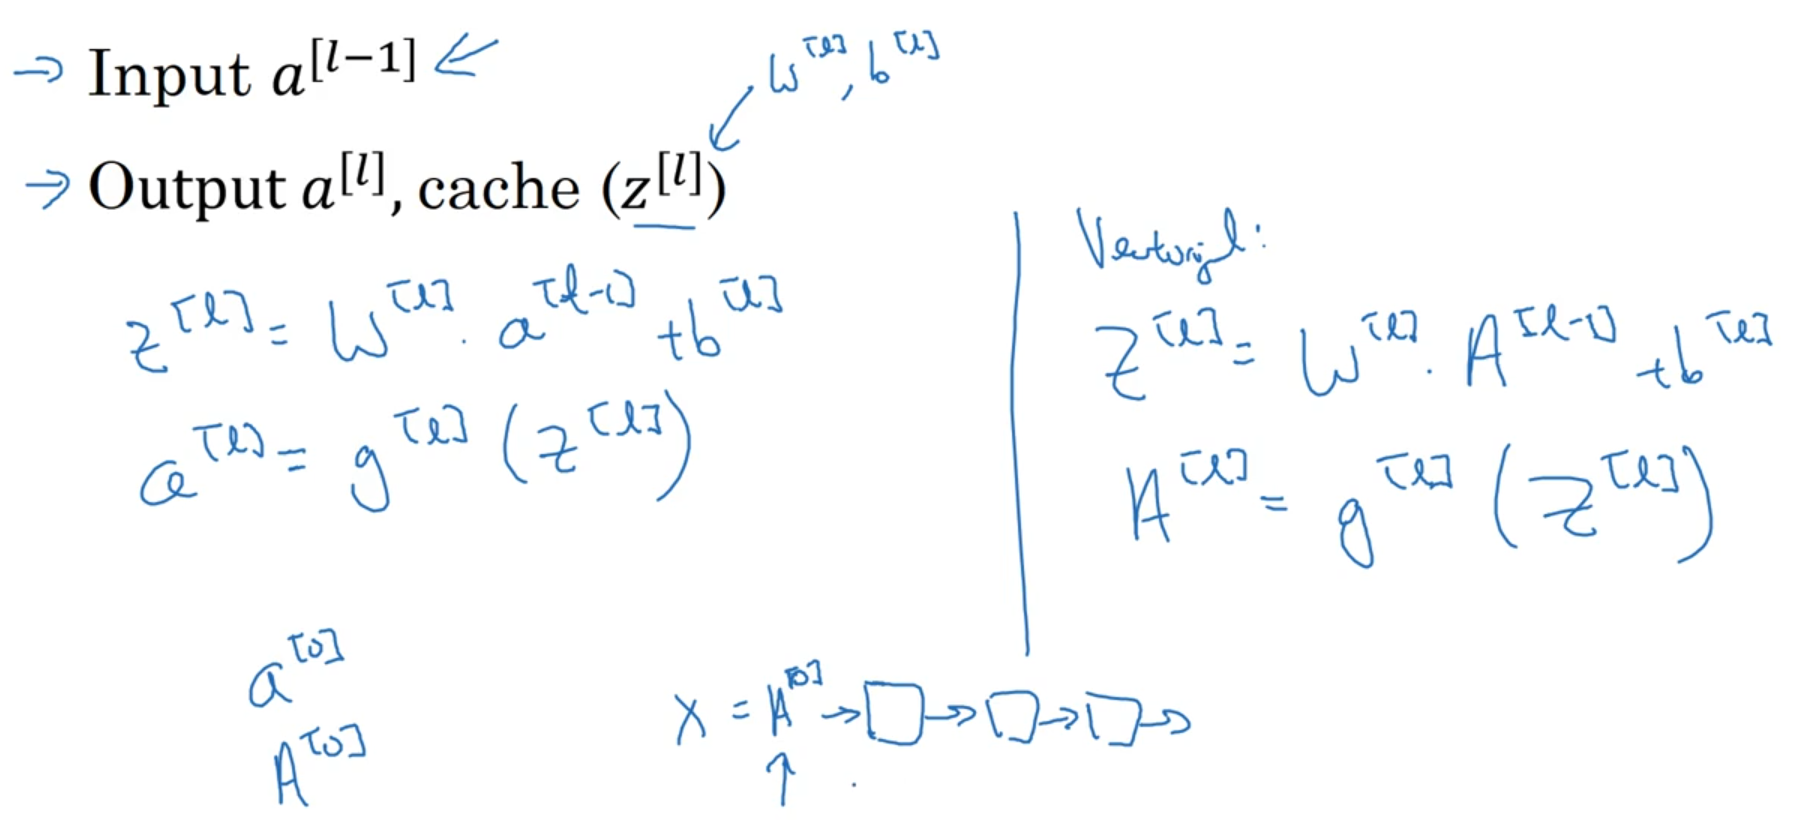 → Input a^[l−1] ←
W^[l], b^[l]
→ Output a^[l], cache (z^[l])
z^[l] = W^[l] · a^[l-1] + b^[l]
a^[l] = g^[l] (z^[l])
Vectorized:
Z^[l] = W^[l] · A^[l-1] + b^[l]
A^[l] = g^[l] (Z^[l])
a^[0]
A^[0]
X = A^[0] → □ → □ → □ →